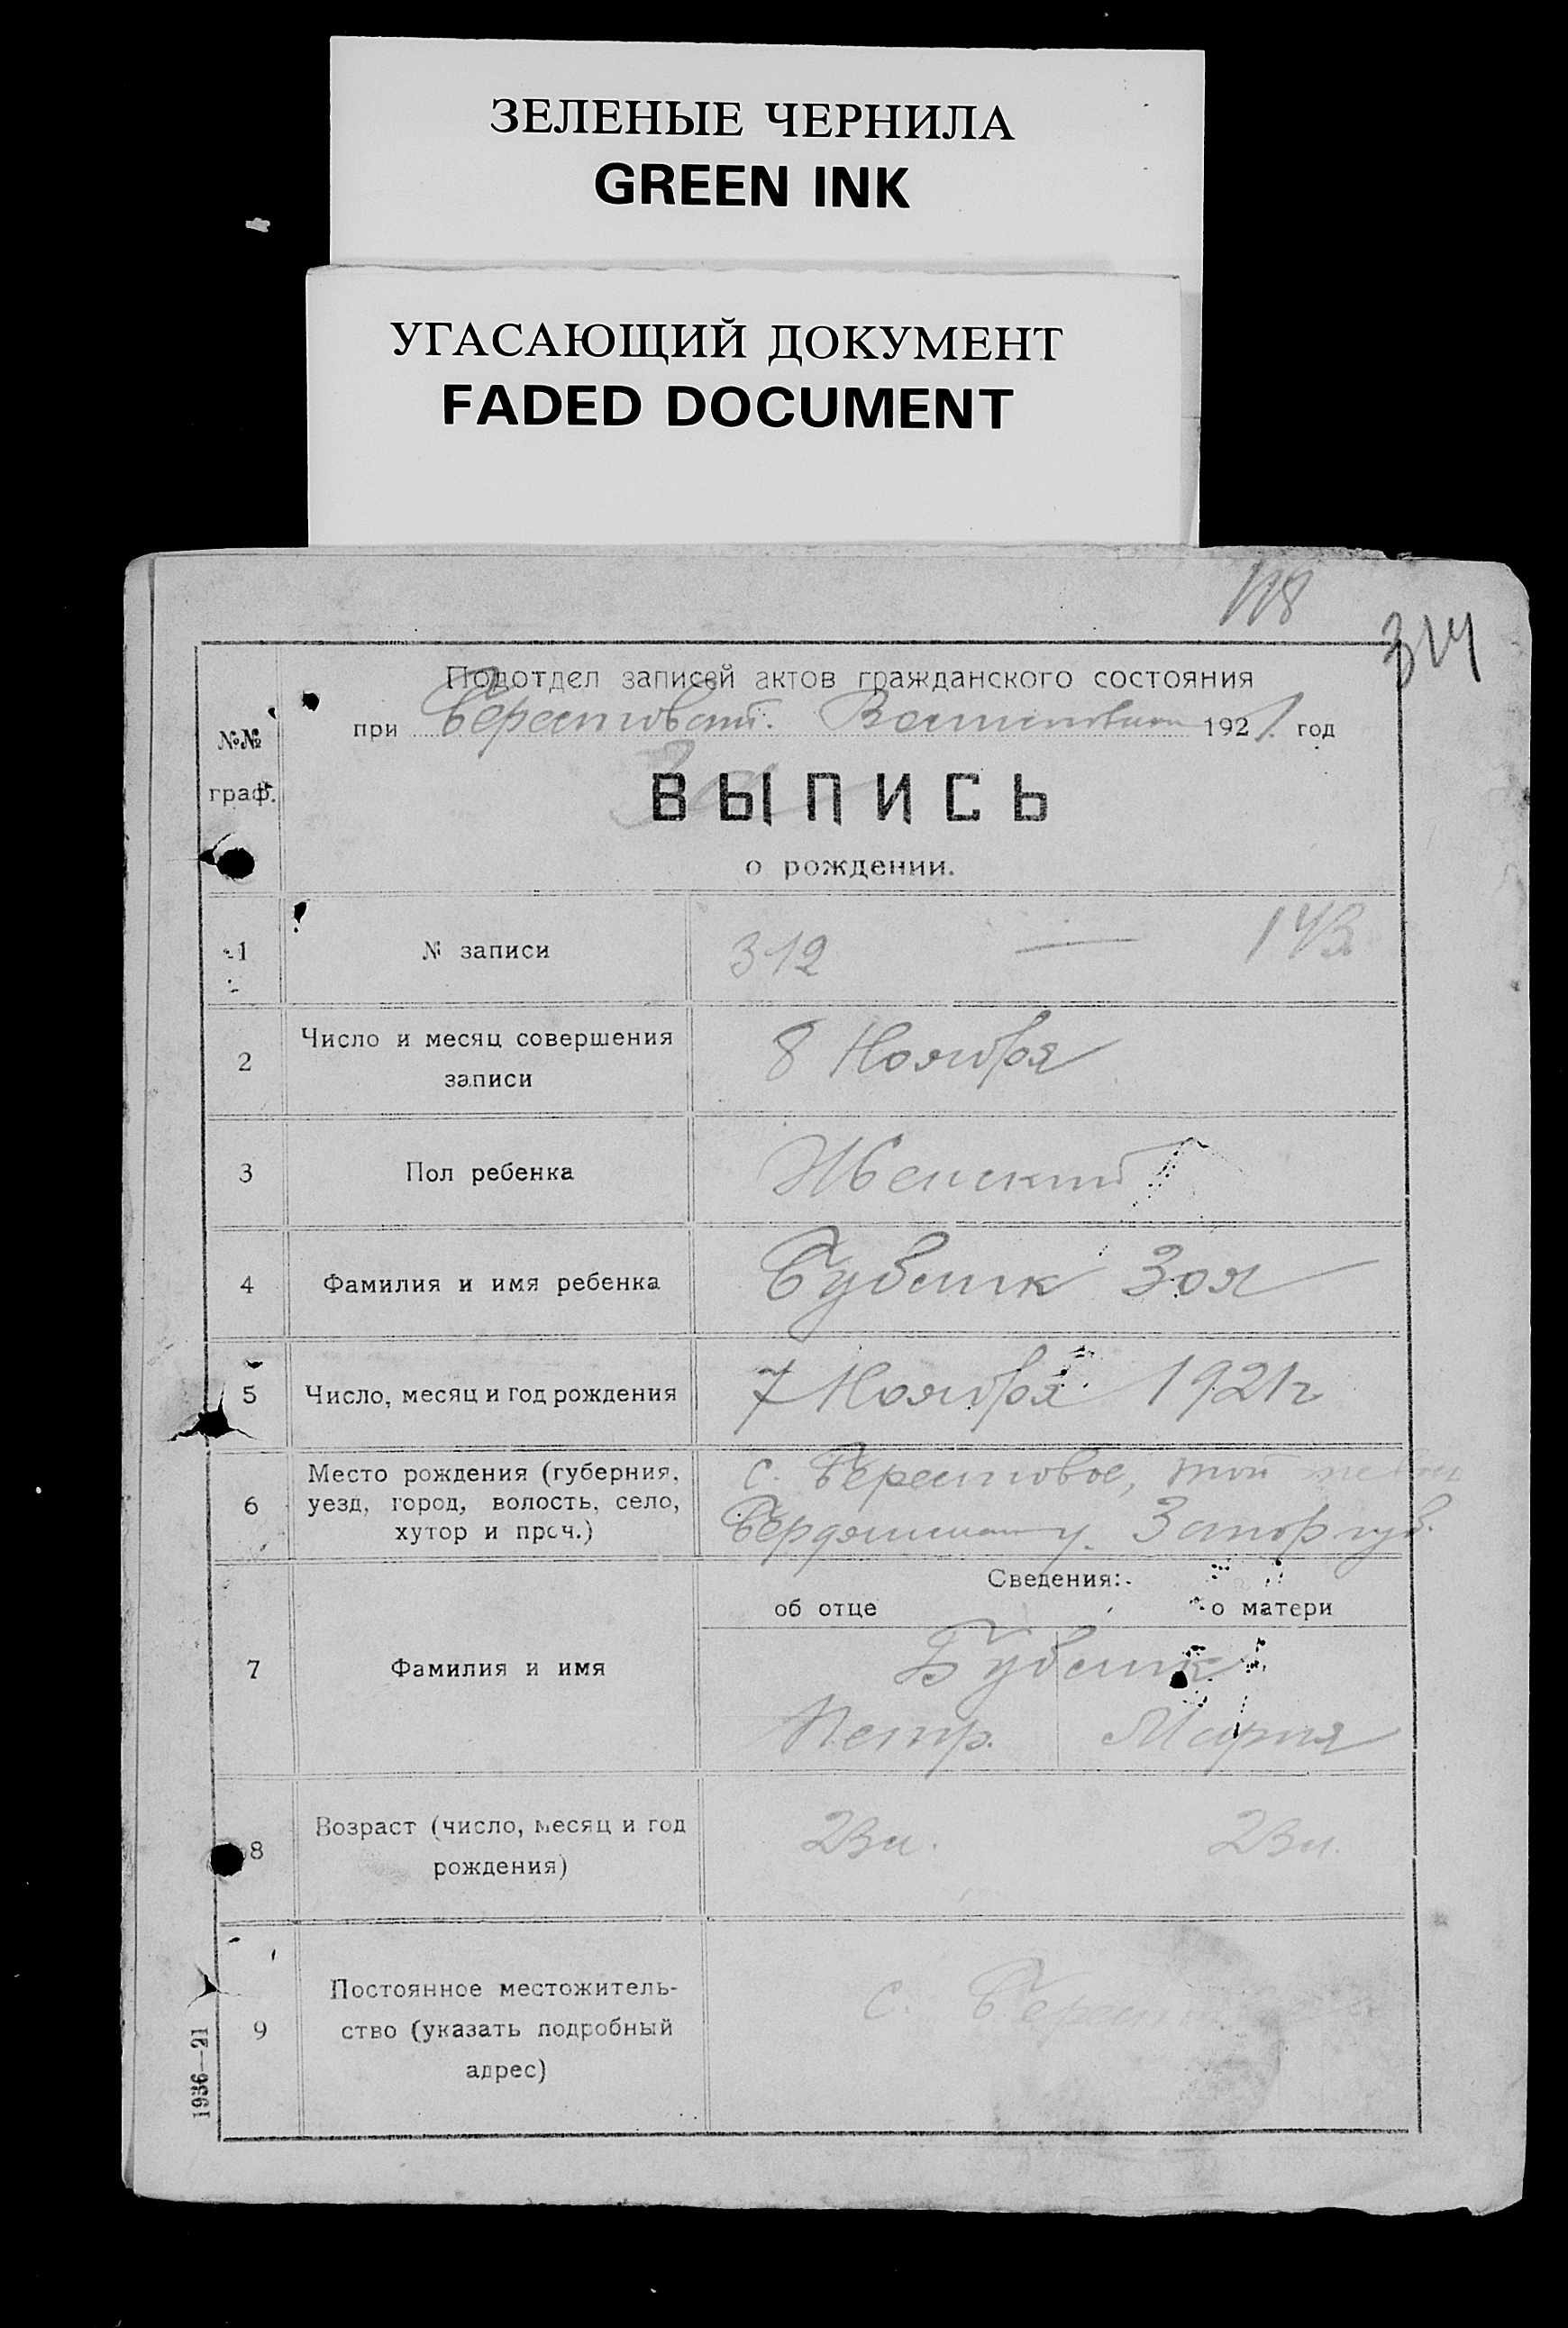 ЗЕЛЕНЫЕ ЧЕРНИЛА
GREEN INK
УГАСАЮЩИЙ ДОКУМЕНТ
FADED DOCUMENT
118
314
Подотдел записей актов гражданского состояния
при 1921 год
№№
граф.
ВЫПИСЬ
о рождении.
1 № записи 312 — 143
2 Число и месяц совершения
записи
8 Ноября
3 Пол ребенка Женский
4 Фамилия и имя ребенка Бублик Зоя
5 Число, месяц и год рождения 7 Ноября 1921 г
6 Место рождения (губерния,
уезд, город, волость, село,
хутор и проч.)
с. Берестовое, той же
у. Запор губ.
Сведения:
об отце о матери
7 Фамилия и имя
Бублик
Петр. Мария
8 Возраст (число, месяц и год
рождения)
23 л. 23 л.
9 Постоянное местожитель-
ство (указать подробный
адрес)
с.
1936—21